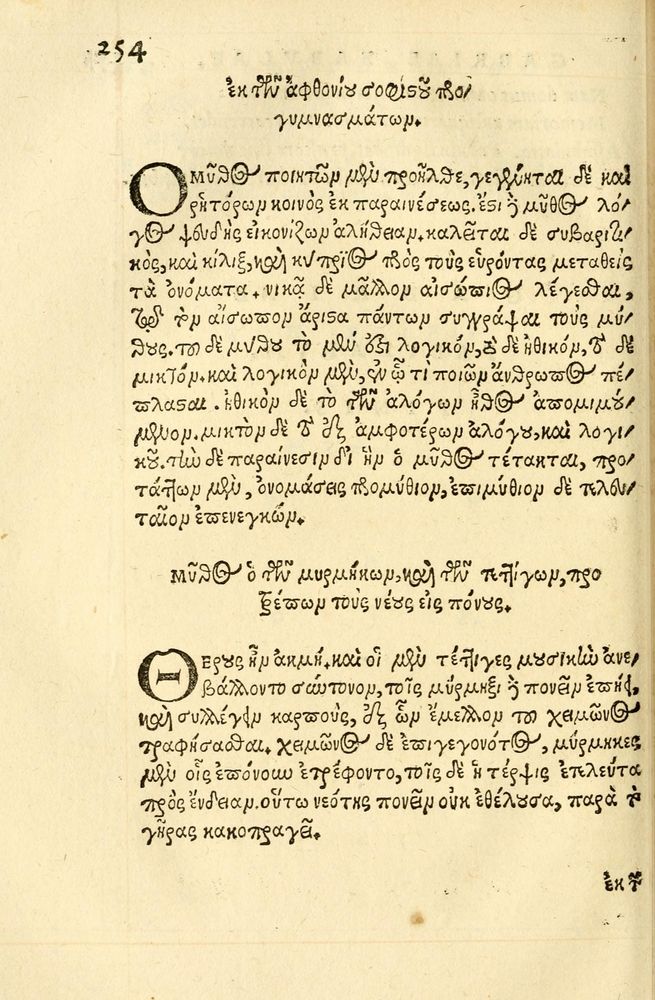 254
ἐκ τῶν ἀφθονίου σοφιστοῦ προ/
γυμνασμάτων.
Ο ΜΥ͂θος ποιητῶν μὲν προῆλθε, γεγένηται δὲ καὶ
ῥητόρων κοινὸς ἐκ παραινέσεως. ἔστι ἢ μῦθος λό/
γος ψευδὴς εἰκονίζων ἀλήθειαν. καλεῖται δὲ συβαριτι/
κὸς, καὶ κίλιξ, καὶ κύπριος πρὸς τοὺς εὑρόντας μεταθεὶς
τὰ ὀνόματα. νικᾷ δὲ μᾶλλον αἰσώπειος λέγεσθαι,
τῷ τὸν αἴσωπον ἄριστα πάντων συγγράψαι τοὺς μύ/
θους. τοῦ δὲ μύθου τὸ μέν ἐστι λογικὸν, τὸ δὲ ἠθικὸν, τὸ δὲ
μικτόν. καὶ λογικὸν μὲν, ἐν ᾧ τι ποιῶν ἄνθρωπος πέ/
πλασται. ἠθικὸν δὲ τὸ τῶν ἀλόγων ἦθος ἀπομιμού/
μενον. μικτὸν δὲ τὸ ἐξ ἀμφοτέρων ἀλόγου, καὶ λογι/
κοῦ. τὴν δὲ παραίνεσιν δι' ἣν ὁ μῦθος τέτακται, προ/
τάττων μὲν, ὀνομάσεις προμύθιον, ἐπιμύθιον δὲ τελευ/
ταῖον ἐπενεγκών.
ΜΥ͂θος ὁ τῶν μυρμήκων, καὶ τῶν τεττίγων, προ
τρέπων τοὺς νέους εἰς πόνους.
ΘΕΡΟΥΣ ἦν ἀκμὴ. καὶ οἱ μὲν τέττιγες μουσικὴν ἀνε/
βάλλοντο σύντονον, τοῖς μύρμηξι ἢ πονεῖν ἐπῄει,
καὶ συλλέγειν καρποὺς, ἐξ ὧν ἔμελλον τοῦ χειμῶνος
τραφήσεσθαι. χειμῶνος δὲ ἐπιγεγονότος, μύρμηκες
μὲν οἷς ἐπόνουν ἐτρέφοντο, τοῖς δὲ ἡ τέρψις ἐτελεύτα
πρὸς ἔνδειαν. οὕτω νεότης πονεῖν οὐκ ἐθέλουσα, παρὰ τὸ
γῆρας κακοπραγεῖ.
ἐκ τ